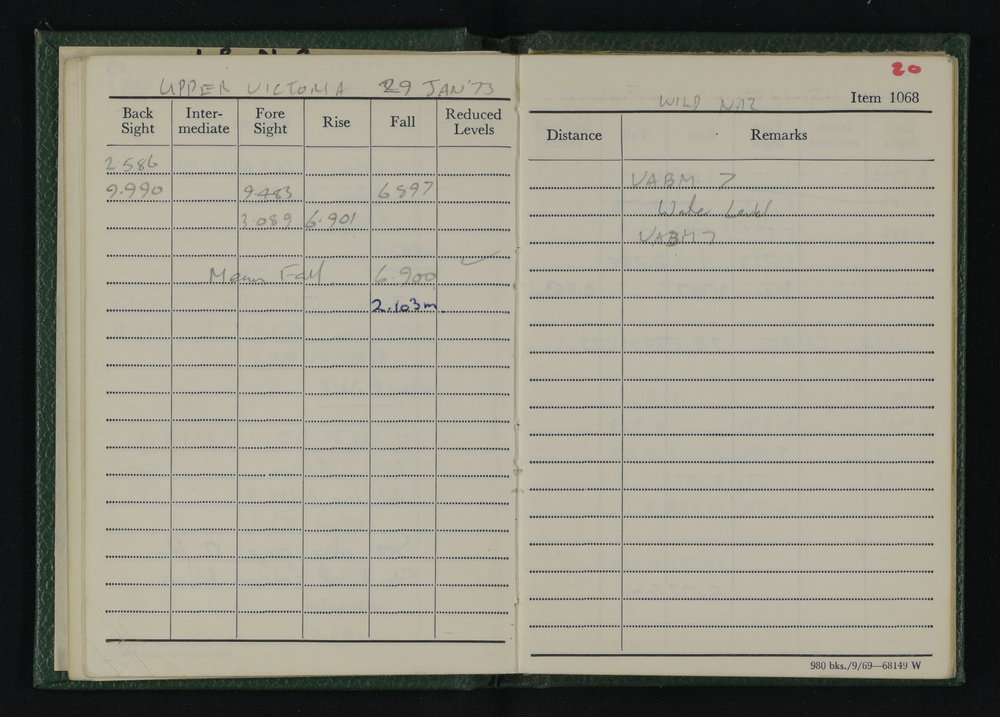 UPPER VICTORIA 29 JAN '73
Back Sight Inter-mediate Fore Sight Rise Fall Reduced Levels
2.586
9.990 9.483 6897
3.089 6.901
Mean Fall 6.900
2.103m
20
WILD NA2 Item 1068
Distance Remarks
VABM 7
Water Level
VABM 7
980 bks./9/69—68149 W